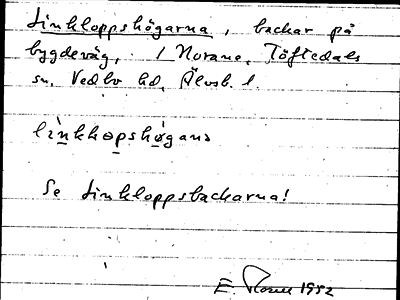 Linkloppshögarna, backar på
bygdeväg, i Norane, Töftedals
sn, Vedbo hd, Älvsb. l.
linkhopshögana
Se Linkloppsbackarna!
E. 1952